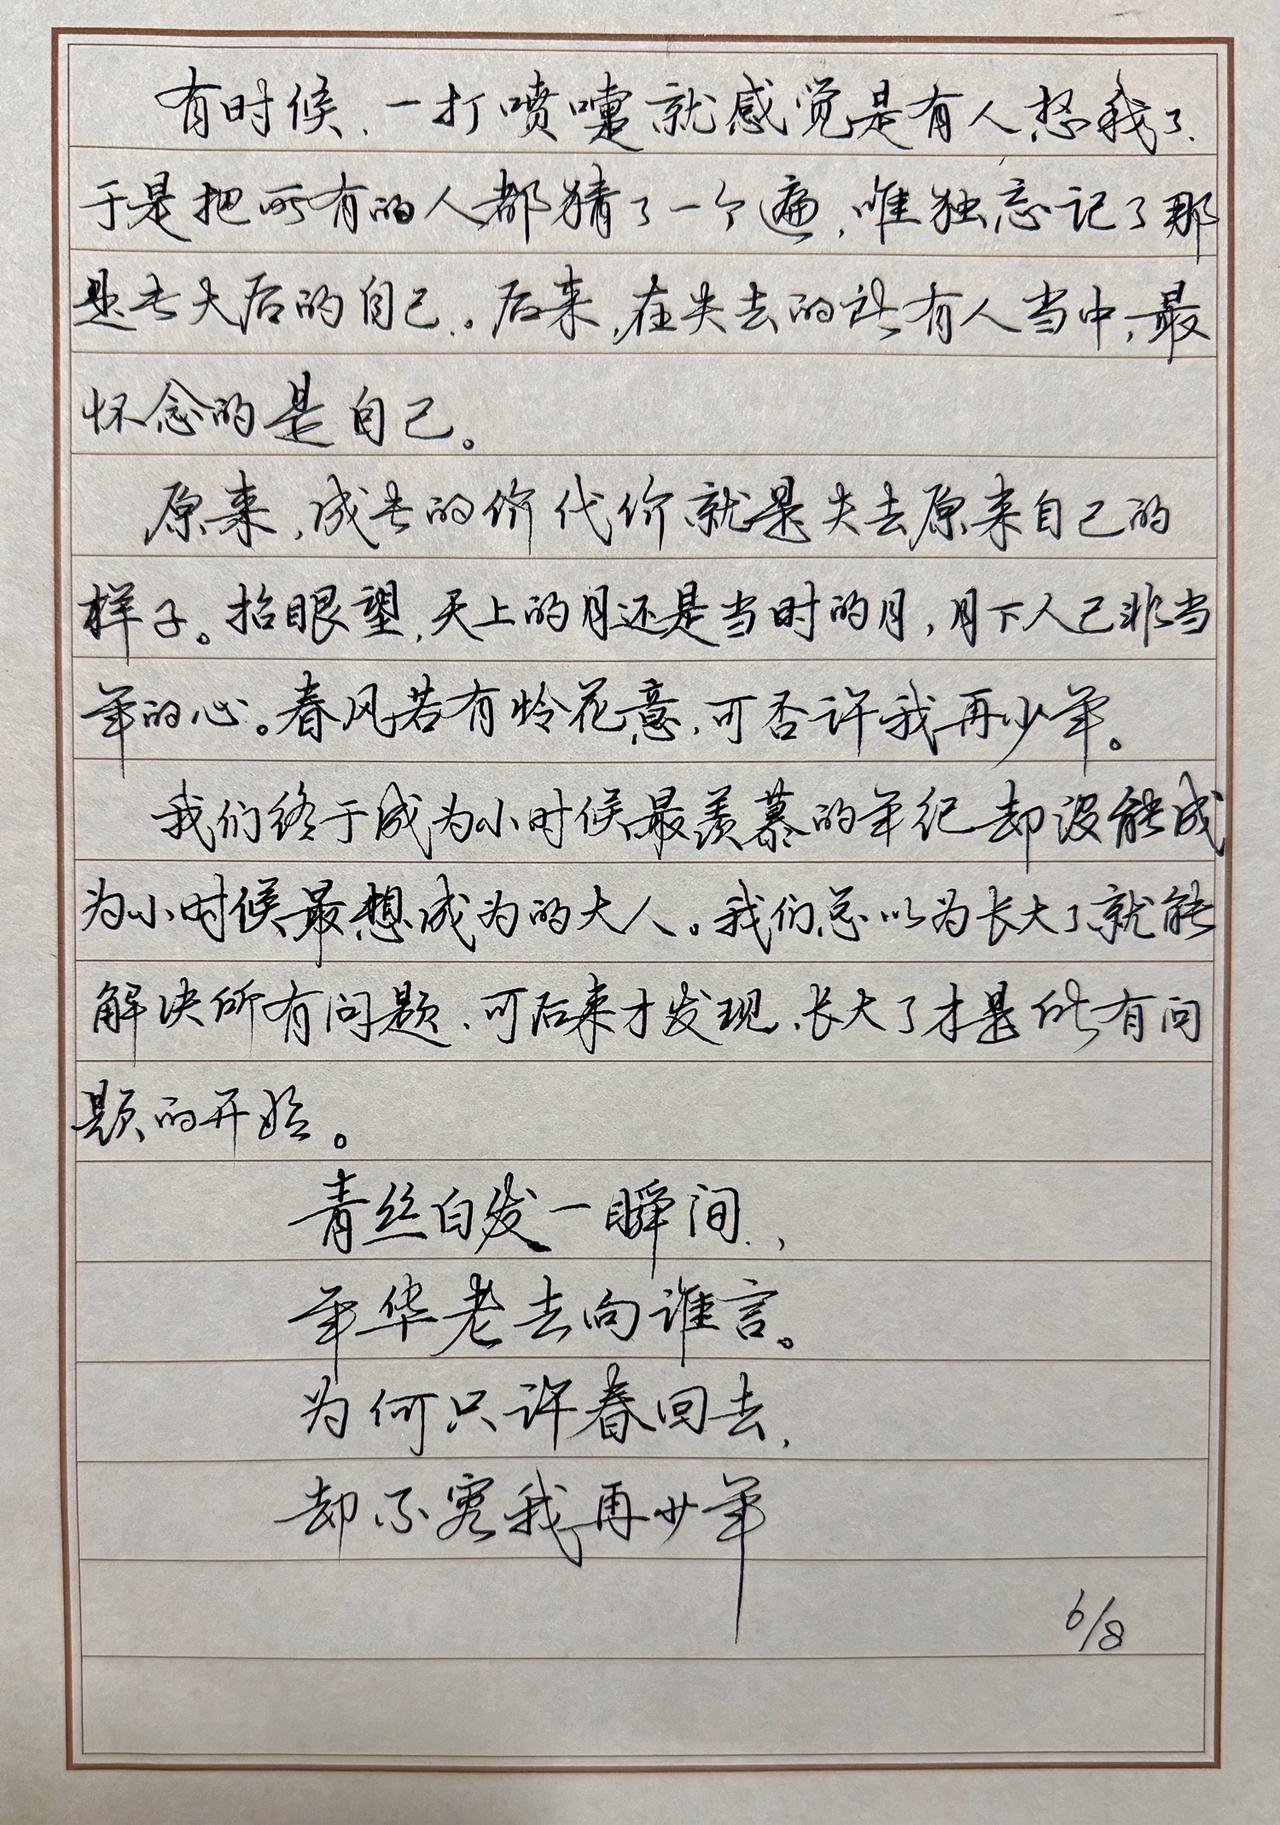 有时候、一打喷嚏就感觉是有人想我了、
于是把所有的人都猜了一个遍，唯独忘记了那
是长大后的自己。后来，在失去的所有人当中，最
怀念的是自己。
原来，成长的价代价就是失去原来自己的
样子。抬眼望，天上的月还是当时的月，月下人已非当
年的心。春风若有怜花意，可否许我再少年。
我们终于成为小时候最羡慕的年纪却没能成
为小时候最想成为的大人。我们总以为长大了就能
解决所有问题、可后来才发现、长大了才是所有问
题的开始。
青丝白发一瞬间，
年华老去向谁言。
为何只许春回去，
却不容我再少年
6/8